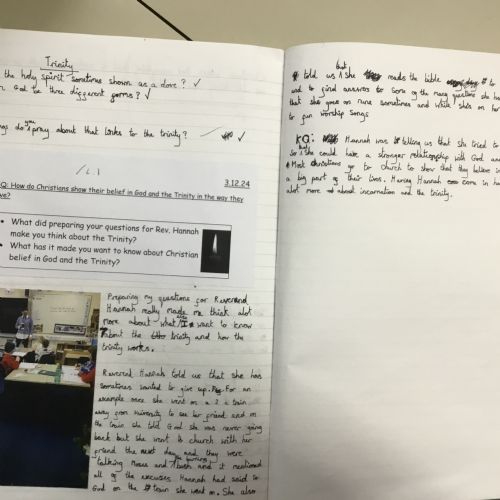 Trinity
the holy spirit sometimes shown as a dove? ✓
God be three different forms? ✓
do you pray about that links to the trinity? ✓
3.12.24
Q: How do Christians show their belief in God and the Trinity in the way they
ve?
• What did preparing your questions for Rev. Hannah
make you think about the Trinity?
• What has it made you want to know about Christian
belief in God and the Trinity?
Preparing my questions for Reverend
Hannah really made me think alot
more about what I want to know
about the trinity and how the
trinity works.
Reverend Hannah told us that she has
sometimes wanted to give up. For an
example once she went on a train
away from university to see her friend and on
the train she told God she was never going
back but she went to church with her
friend the next day and they were
talking Moses and burning bush and it mentioned
all of the excuses Hannah had said to
God on the train she went on. She also
told us that she reads the bible to
and to find answers to some of the many questions she ha
that she goes on runs sometimes and while she's on her
to fun worship songs
KQ: Hannah was telling us that she tried to
so that she could have a stronger relationship with God and
Most christians go to church to show that they believe in
a big part of their lives. Having Hannah come in h
alot more about incarnation and the trinity.